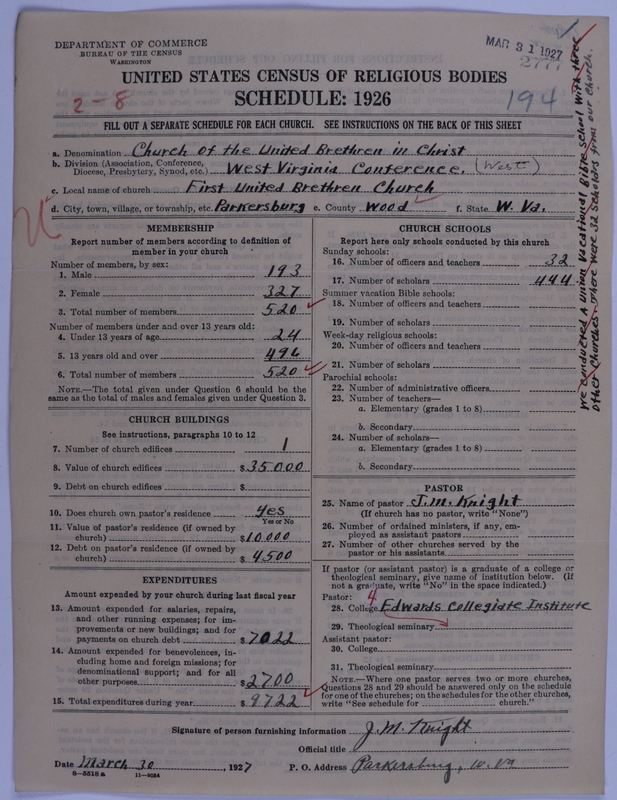 DEPARTMENT OF COMMERCE
BUREAU OF THE CENSUS
WASHINGTON
MAR 31 1927
2777
UNITED STATES CENSUS OF RELIGIOUS BODIES
SCHEDULE: 1926
2-8
194
FILL OUT A SEPARATE SCHEDULE FOR EACH CHURCH. SEE INSTRUCTIONS ON THE BACK OF THIS SHEET
a. Denomination Church of the United Brethren in Christ
b. Division (Association, Conference, Diocese, Presbytery, Synod, etc.) West Virginia Conference. (West)
c. Local name of church First United Brethren Church
d. City, town, village, or township, etc. Parkersburg e. County Wood f. State W. Va.
We conducted a Union Vacational Bible School with three
other Churches. There were 32 Scholars from our Church.
MEMBERSHIP
Report number of members according to definition of
member in your church
Number of members, by sex:
1. Male 193
2. Female 327
3. Total number of members 520
Number of members under and over 13 years old:
4. Under 13 years of age 24
5. 13 years old and over 496
6. Total number of members 520
NOTE.—The total given under Question 6 should be the
same as the total of males and females given under Question 3.
CHURCH BUILDINGS
See instructions, paragraphs 10 to 12
7. Number of church edifices 1
8. Value of church edifices $35000
9. Debt on church edifices $
10. Does church own pastor's residence yes
Yes or No
11. Value of pastor's residence (if owned by
church) $10000
12. Debt on pastor's residence (if owned by
church) $4500
EXPENDITURES
Amount expended by church during last fiscal year
13. Amount expended for salaries, repairs,
and other running expenses; for im-
provements or new buildings; and for
payments on church debt $7022
14. Amount expended for benevolences, in-
cluding home and foreign missions; for
denominational support; and for all
other purposes $2700
15. Total expenditures during year $9722
CHURCH SCHOOLS
Report here only schools conducted by this church
Sunday schools:
16. Number of officers and teachers 32
17. Number of scholars 444
Summer vacation Bible schools:
18. Number of officers and teachers
19. Number of scholars
Week-day religious schools:
20. Number of officers and teachers
21. Number of scholars
Parochial schools:
22. Number of administrative officers
23. Number of teachers—
a. Elementary (grades 1 to 8)
b. Secondary
24. Number of scholars—
a. Elementary (grades 1 to 8)
b. Secondary
PASTOR
25. Name of pastor J.M. Knight
(If church has no pastor, write "None")
26. Number of ordained ministers, if any, em-
ployed as assistant pastors
27. Number of other churches served by the
pastor or his assistants
If pastor (or assistant pastor) is a graduate of a college or
theological seminary, give name of institution below. (If
not a graduate, write "No" in the space indicated.)
Pastor: 4
28. College Edwards Collegiate Institute
29. Theological seminary
Assistant pastor:
30. College
31. Theological seminary
NOTE.—Where one pastor serves two or more churches,
Questions 28 and 29 should be answered only on the schedule
for one of the churches; on the schedules for the other churches,
write "See schedule for church."
Signature of person furnishing information J. M. Knight
Official title
Date March 30, 1927 P. O. Address Parkersburg, W. Va
8—5518 a 11—9024